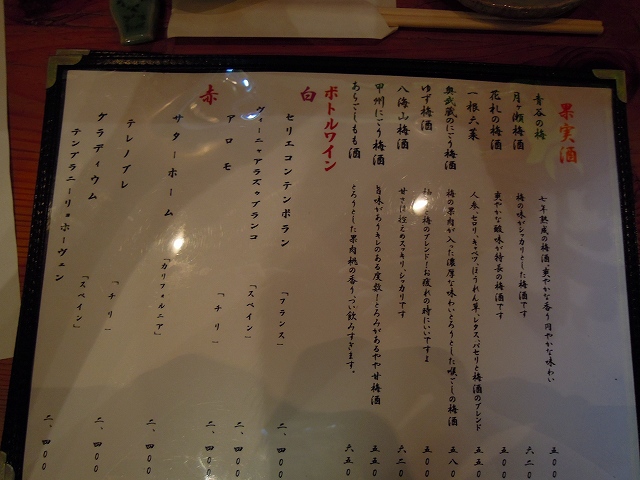 果実酒
青谷の梅 七年熟成の梅酒、爽やかな香り円やかな味わい 五〇〇
月ヶ瀬梅酒 梅の味がシッカリとした梅酒です 六二〇
花札の梅酒 爽やかな酸味が特長の梅酒です 五〇〇
一根六菜 人参、セロリ、キャベツ、ほうれん草、レタス、パセリと梅酒のブレンド 五五〇
奥武蔵のにごり梅酒 梅の果肉が入った濃厚な味わいとろうとした喉ごしの梅酒 五八〇
ゆず梅酒 梅のブレンド!お疲れの時にいいですよ 五〇〇
八海山梅酒 甘さは控えめスッキリ、シッカリです 六二〇
甲州にごり梅酒 旨味がありキレのある度数!とろみがあるやや甘梅酒 五五〇
あらごしもも酒 とろうとした果肉桃の香り、つい飲みすぎます。 六五〇
ボトルワイン
白
セリエコンテンポラン 「フランス」 二、四〇〇
ヴィーニャアラズゥブランコ 「スペイン」 二、四〇〇
アロモ 「チリ」 二、四〇〇
赤
サターホーム 「カリフォルニア」 二、四〇〇
テレノブレ 「チリ」 二、四〇〇
ケラディウム 「スペイン」 二、四〇〇
テンプラニーリョホーヴェン